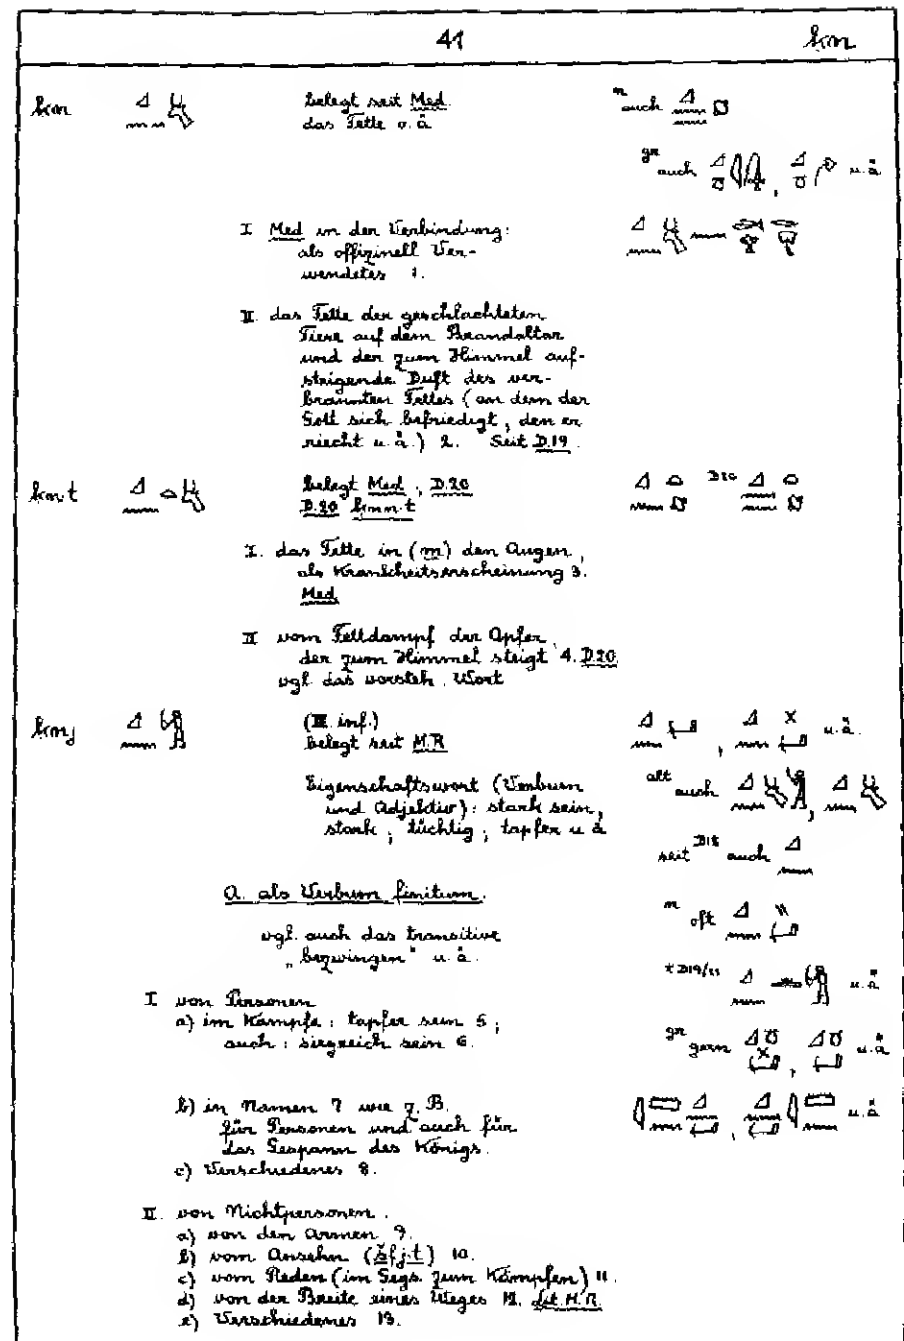 41 ḳn
ḳn belegt seit Med. n auch
das Fette o. ä
gr auch , u. ä
I Med in der Verbindung:
als offizinell Ver-
wendetes 1.
II. das Fette der geschlachteten
Tiere auf dem Brandaltar
und der zum Himmel auf-
steigende Duft des ver-
brannten Fettes (an dem der
Gott sich befriedigt, den er
riecht u. ä.) 2. Seit D. 19.
ḳn.t belegt Med., D. 20 D 20
D. 20 ḳnn.t
I. das Fette in (m) den Augen,
als Krankheitserscheinung 3.
Med
II vom Fettdampf der Opfer,
der zum Himmel steigt 4. D 20.
vgl. das vorsteh. Wort
ḳnj (III. inf.) , u. ä.
belegt seit M.R
Eigenschaftswort (Verbum alt auch ,
und Adjektiv): stark sein,
stark; tüchtig; tapfer u. ä
seit D 18 auch
A. als Verbum finitum.
n oft
vgl. auch das transitive
„bezwingen" u. ä.
* D 19/ u. ä
I von Personen
a) im Kampfe: tapfer sein 5;
auch: siegreich sein 6. gr gern , u. ä
b) in Namen 7 wie z. B. , u. ä
für Personen und auch für
das Gespann des Königs.
c) Verschiedenes 8.
II. von Nichtpersonen.
a) von den Armen 9.
b) vom Ansehn (šfj.t) 10.
c) vom Reden (im Ggs. zum Kämpfen) 11.
d) von der Breite eines Weges 12. Lit. M. R.
e) Verschiedenes 13.